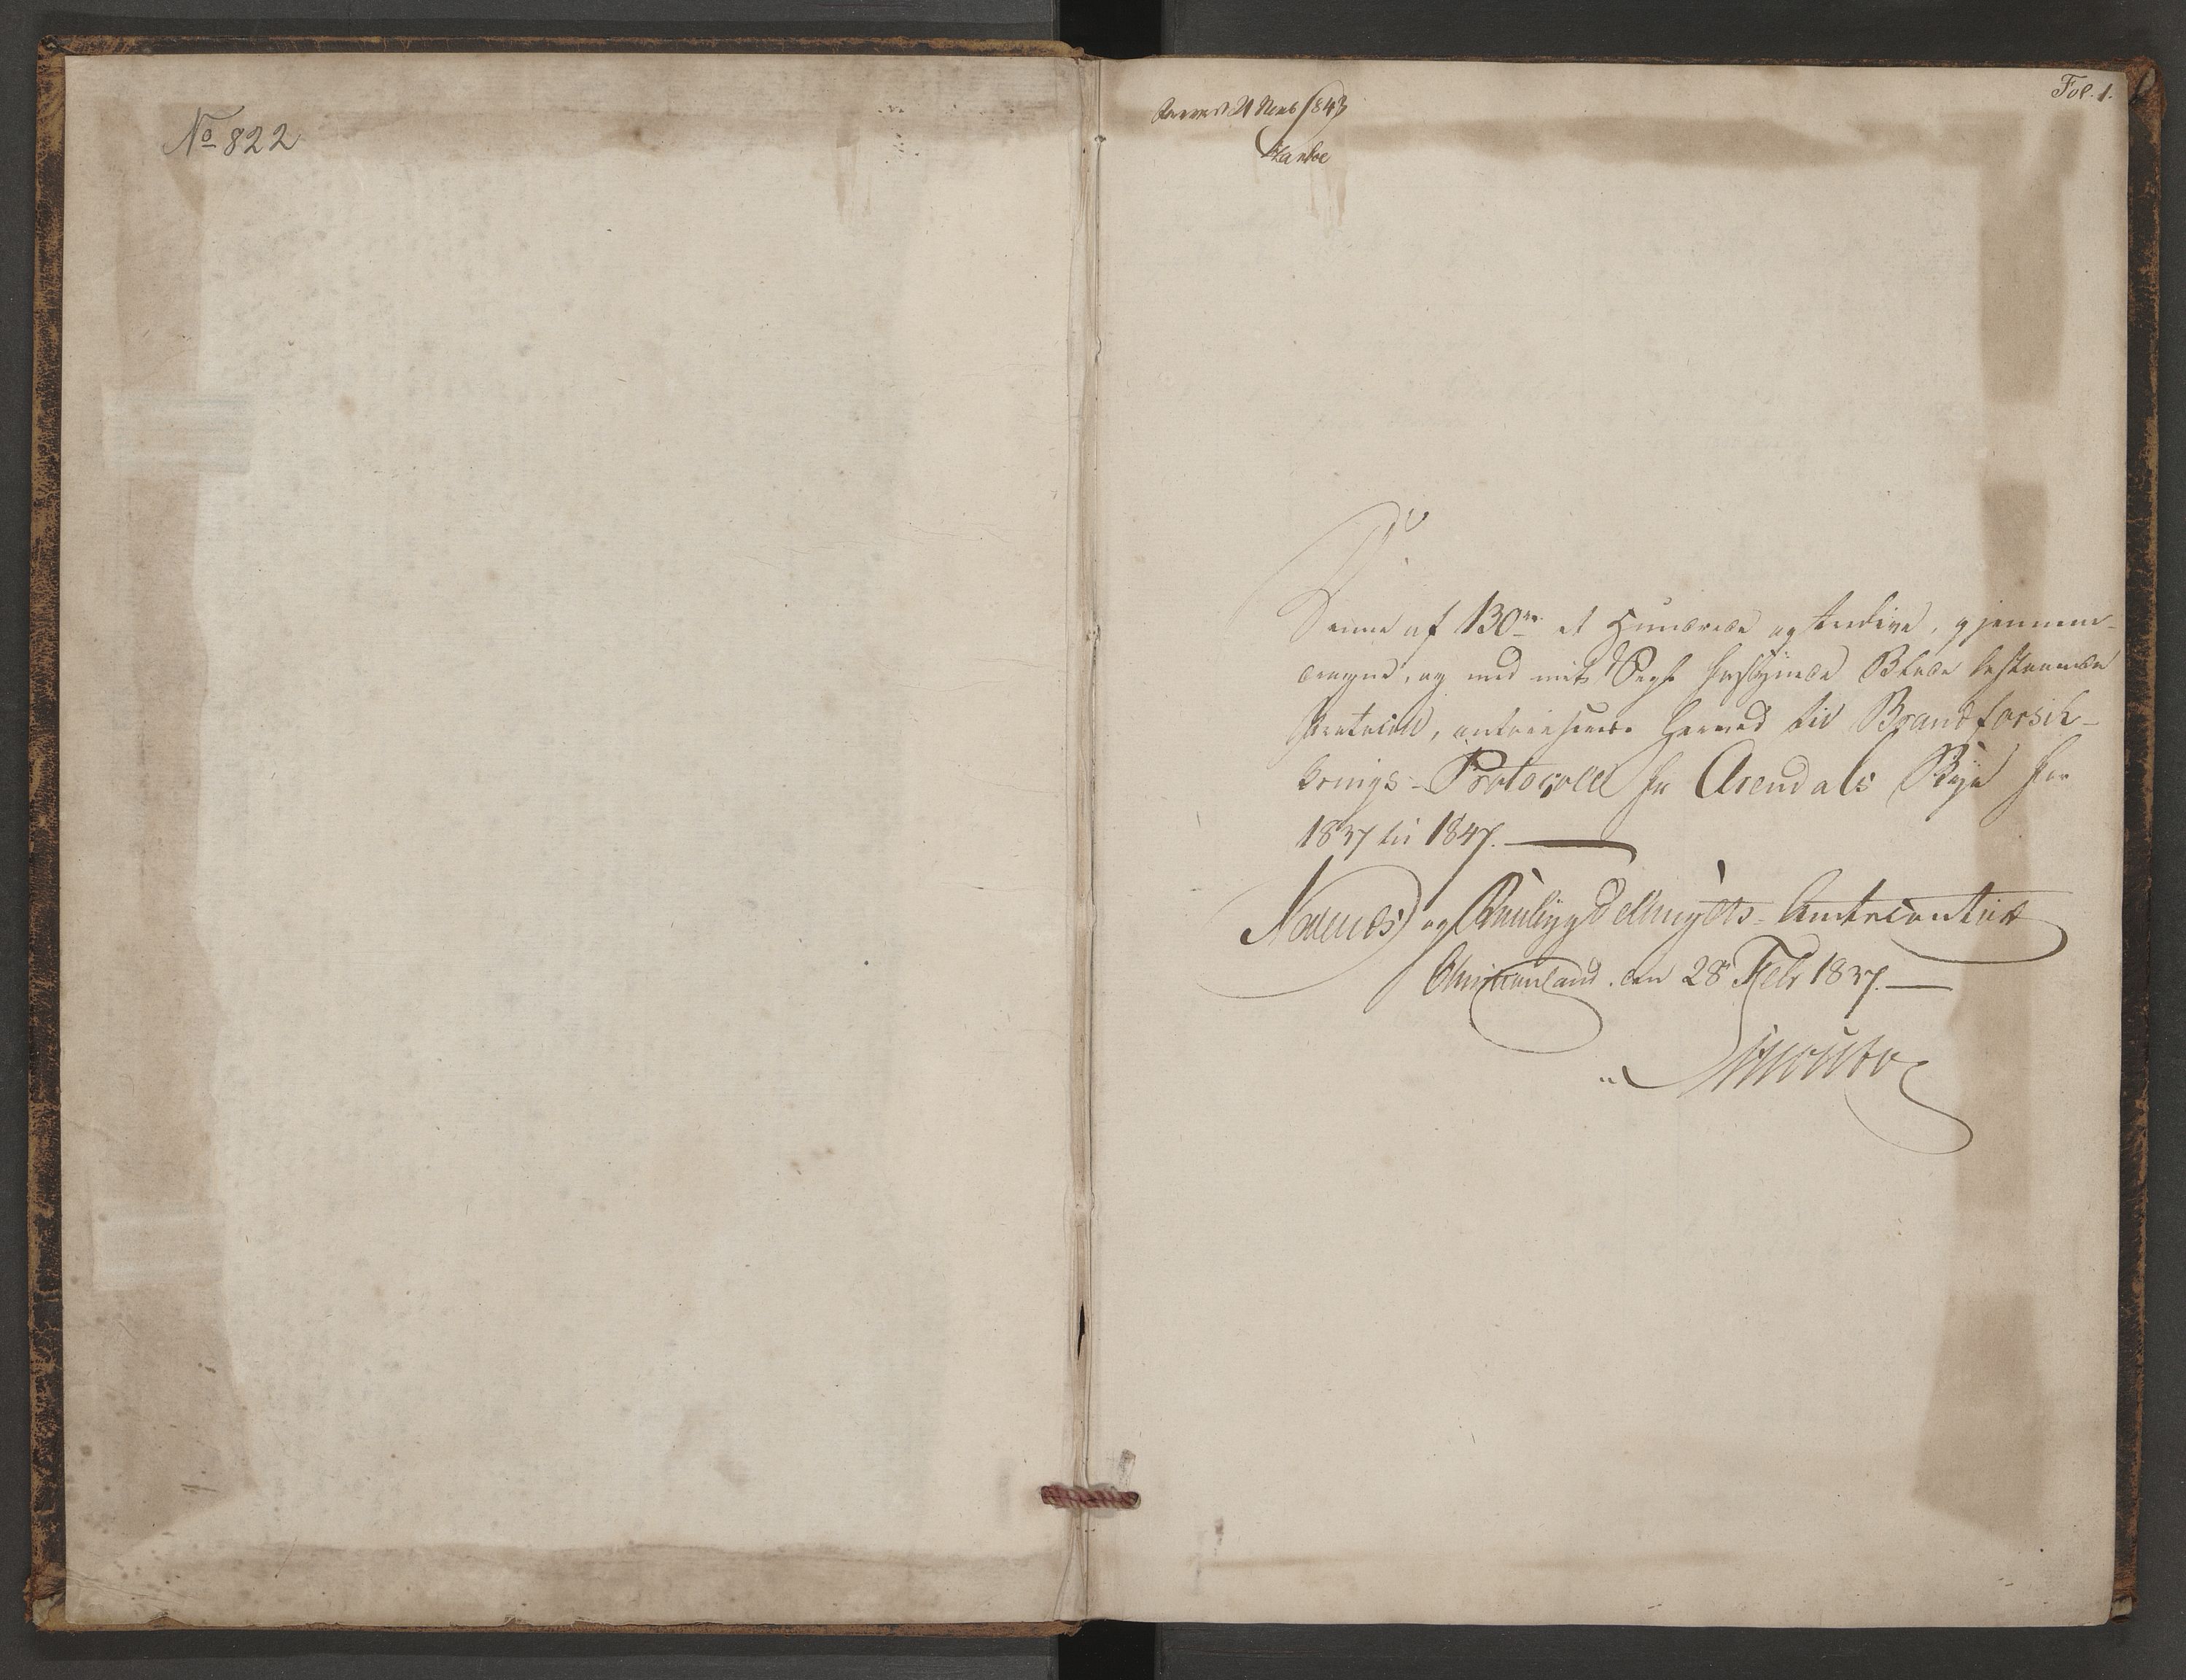 No 822
Fol. 1.
21 1843
Denne af 130re et Hundrede og tredive, gjennem-
dragne, og med mit Segl forsynede Blade bestaaende
Protocoll, autoriseres herved til Brandforsik-
krings-Protocoll for Arendals Bye for
1837 til 1847.
Nedenes og Raabygdelaugets Amtscontoir
Christiansand den 28 Febr 1837.